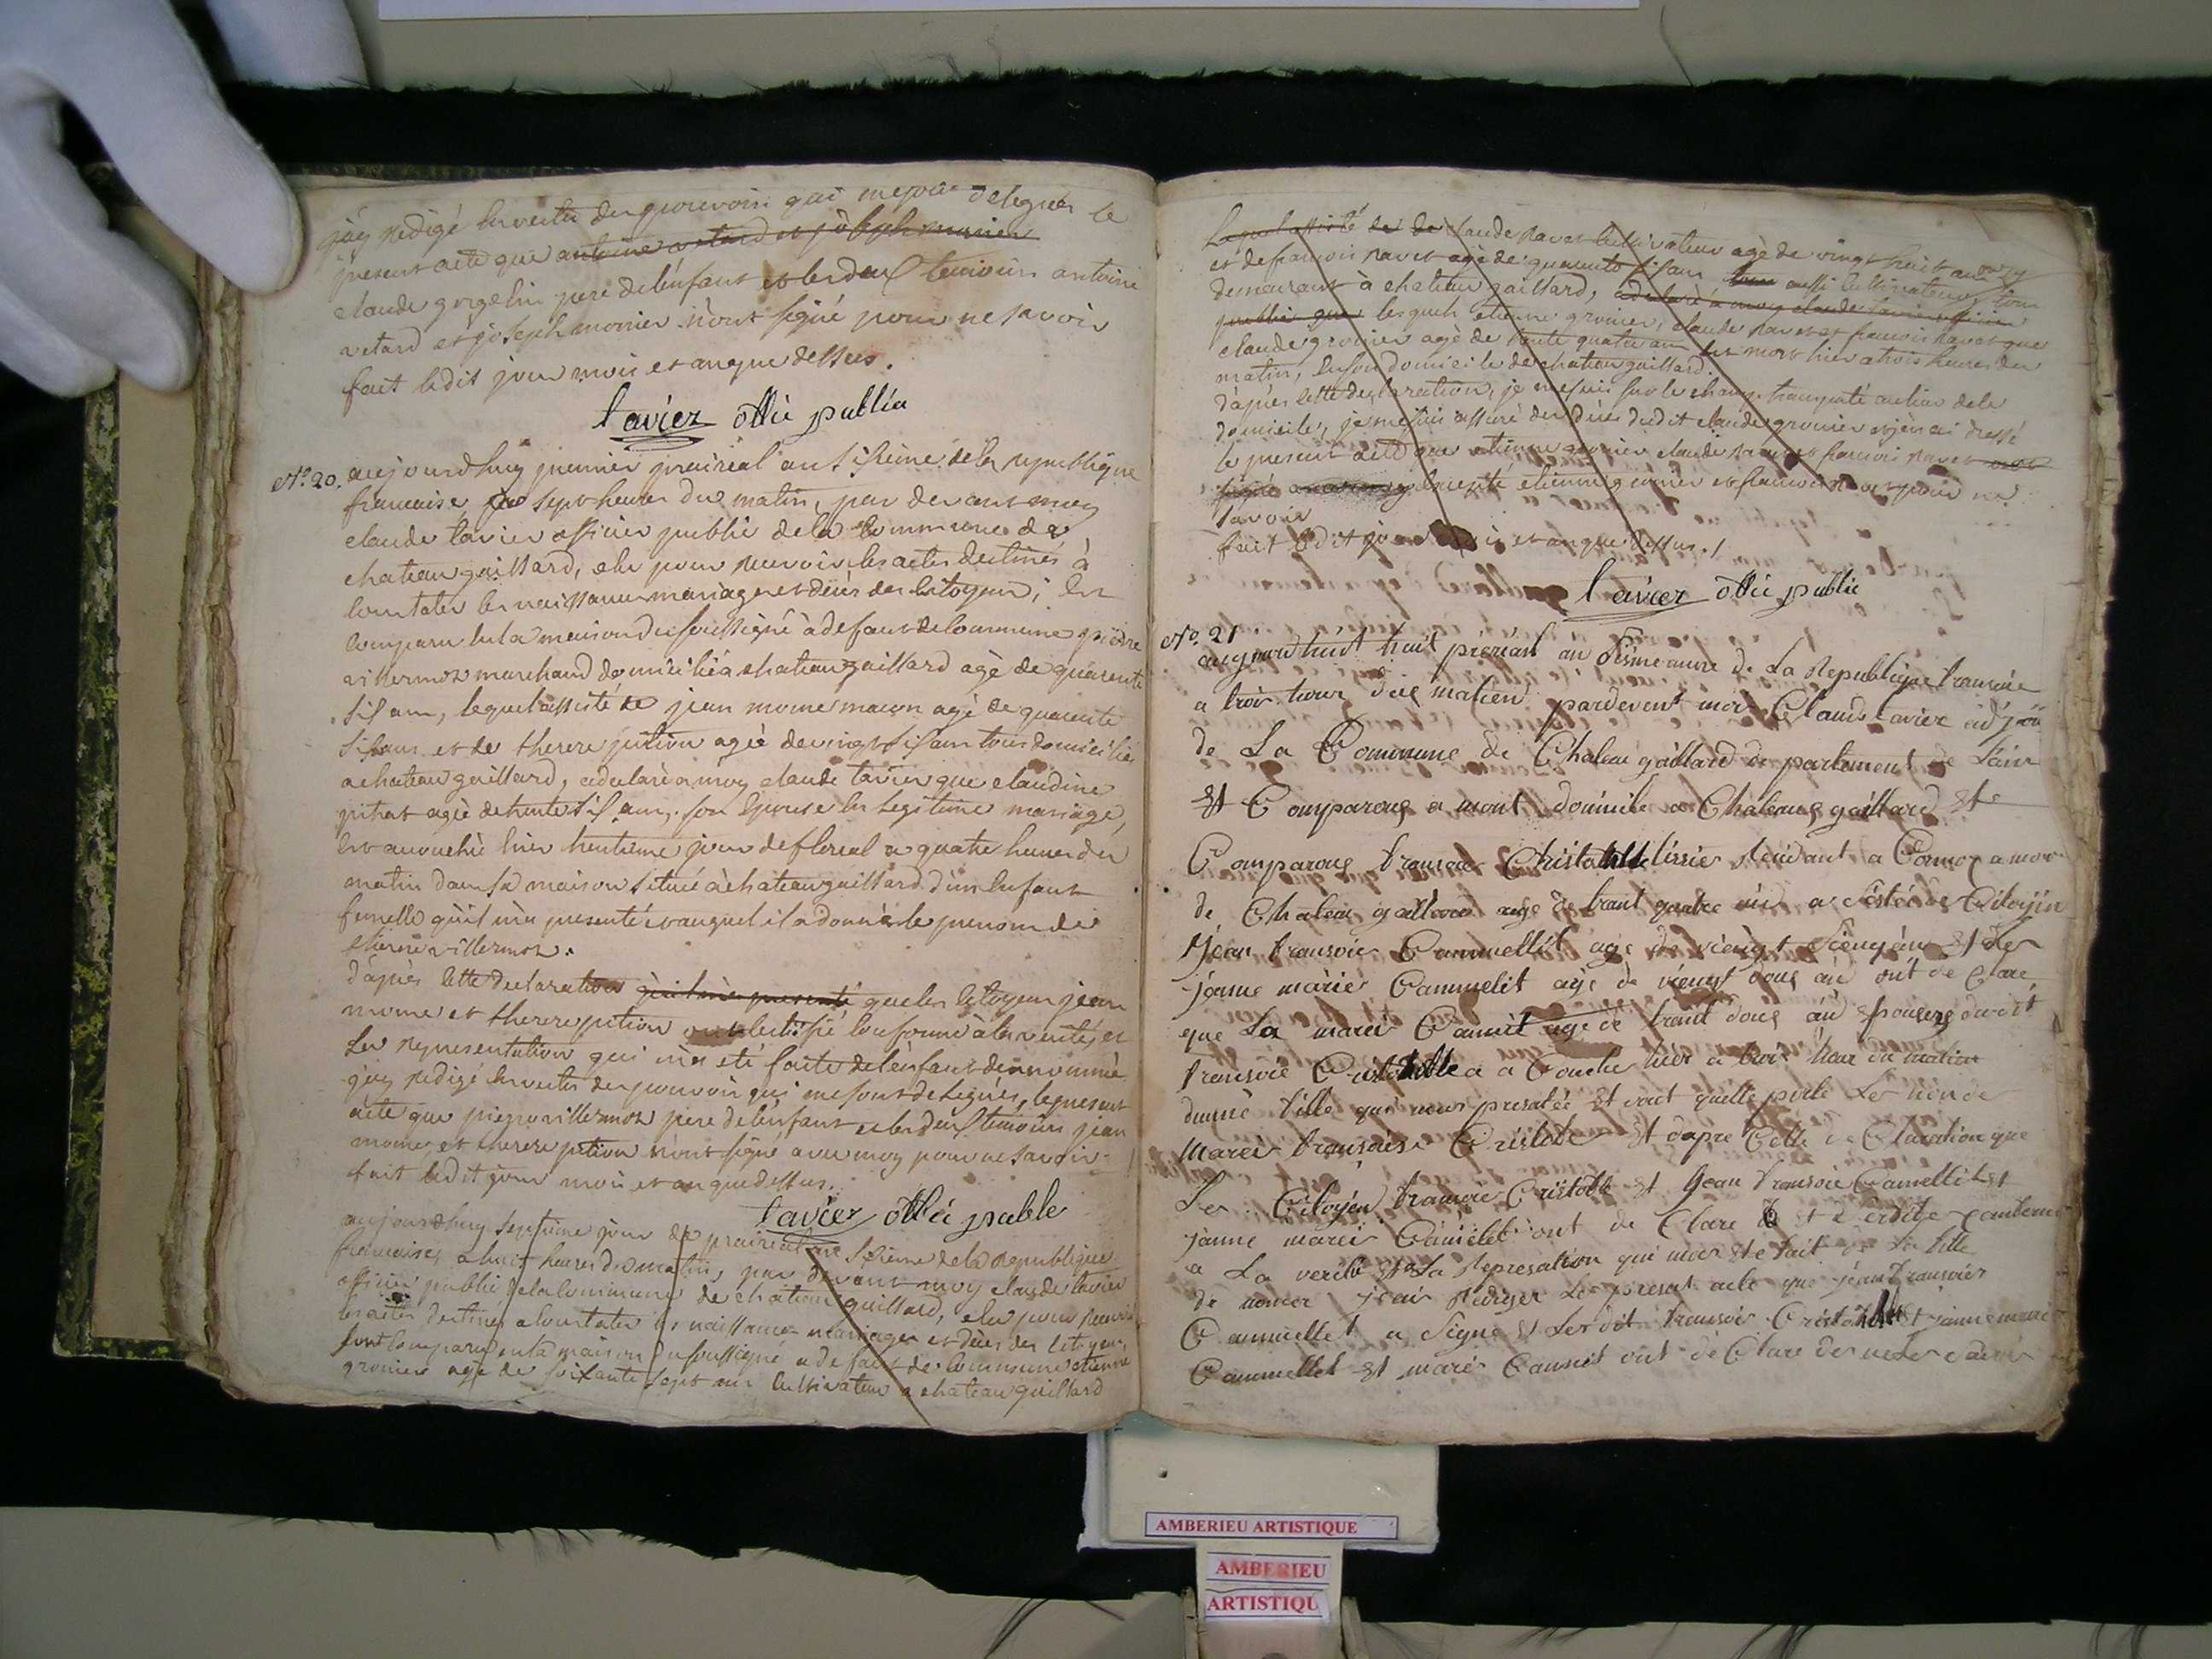 j'ay redigé en vertu des pouvoirs qui me sont delegués le
present acte que antoine retard et joseph monier
claude gorgelin pere de l'enfant et les deux temoins antoine
retard et joseph monier n'ont signé pour ne savoir
fait ledit jour mois et an que dessus.
tavier offic public
N.º 20. aujourdhuy premier prairial an sixieme de la republique
francaise, a sept heures du matin, par devant moy
claude tavier officier public de la commune de
chateaugaillard, elu pour recevoir les actes destinés à
constater les naissances mariages et décès des citoyens; est
comparu en la maison du soussigné à defaut de commune pierre
villermoz marchand domicilié à chateaugaillard agé de quarente
six ans, lequel assisté de jean moine macon agé de quarente
six ans et de therese pition agée de vingt six ans tous domiciliés
a chateau gaillard, a declaré a moy claude tavier que claudine
pitrat agée de trente six ans, son epouse en legitime mariage,
est accouchée hier trentieme jour de floreal a quatre heures du
matin dans sa maison située à chateaugaillard d'un enfant
femelle qu'il m'a presenté et auquel il a donné le prenom de
etienne villermoz.
d'après cette declaration qu'il m'a presenté que les citoyens jean
moine et therese pition ont certifié conforme à la verité, et
la representation qui m'a eté faite de l'enfant denommé
j'ay redigé en vertu des pouvoirs qui me sont delegués, le present
acte que pierre villermoz pere de l'enfant et les deux temoins jean
moine, et therese pition n'ont signé avec moy pour ne savoir
fait ledit jour mois et an que dessus.
tavier offic public
aujourdhuy septieme jour de prairial an sixieme de la republique
francaise, a huit heures du matin, par devant moy claude tavier
officier public de la commune de chateau gaillard, elu pour recevoir
les actes destinés a constater les naissances mariages et décès des citoyens,
sont comparu en la maison du soussigné a defaut de commune etienne
gronier agé de soixante sept ans cultivateur a chateau gaillard
Lequel assisté de de claude ravet cultivateur agé de vingt huit ans
et de francois ravet agé de quarente six ans tous aussi cultivateurs tous
demeurant à chateau gaillard, a declaré à moy claude tavier officier
public que lesquels etienne gronier, claude ravet et francois ravet que
claude gronier agé de trente quatre ans est mort hier a trois heures du
matin, en son domicile de chateau gaillard.
d'après cette declaration, je me suis sur le champ transporté au lieu de ce
domicile, je me suis assuré du décès dudit claude gronier et j'en ai dressé
le present acte que etienne gronier claude ravet et francois ravet
signé etienne gronier et francois ravet pour ne
savoir
fait ledit jour mois et an que dessus./
tavier offic public
N.º 21
aujourdhuit huit prieréal an sisime anne de La Republique franseise
a troir heurs dus matien pardevent moi Claude tavier adjoin
de La Commune de Chateau gaillard de partement de Lain
st Comparous a mont domicile a Chateaus gaillard st
Comparous fransois Cristoble tissier
de Chateau gaillard age de trant quatre ans a sisté de Citoyin
Jean fransois Cammellit age de vieingt sieng an st de
janne marie Cammelit age de vieugt dous an ont de Clare
que La marie Cannit age de trant dous an Epouses dudit
fransoie Cristoble a a Couche hier a trois heur du matien
dunne fille que nous presatée st dont quelle porte Le nonde
Marei fransoise Cristoble st dapre Celle de Claration que
Les Citoyen fransoie Cristoble st Jean fransoie Camellit st
janne mareis Camelet ont de Clare
a La verite st La Represation qui mois ste fait de La fille
de nomer jeai Rediger Le presat acte que jean fransoies
Cammellet a Signe st Ledit fransois Cristoble st janne marie
Cammellet st marie Cannit ont de Clare de ne
AMBERIEU ARTISTIQUE
AMBERIEU
ARTISTIQU